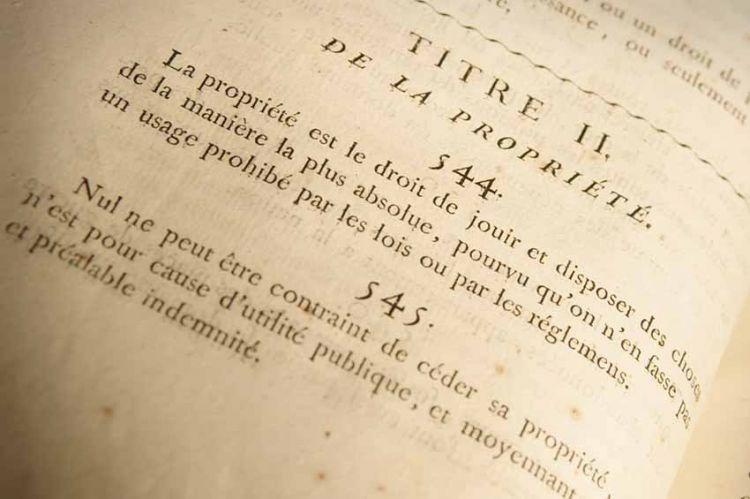 , ou un droit de
sance, ou seulement
TITRE II.
DE LA PROPRIÉTÉ.
544.
La propriété est le droit de jouir et disposer des choses
de la manière la plus absolue, pourvu qu'on n'en fasse pas
un usage prohibé par les lois ou par les réglemens.
545.
Nul ne peut être contraint de céder sa propriété,
n'est pour cause d'utilité publique, et moyennant
et préalable indemnité.